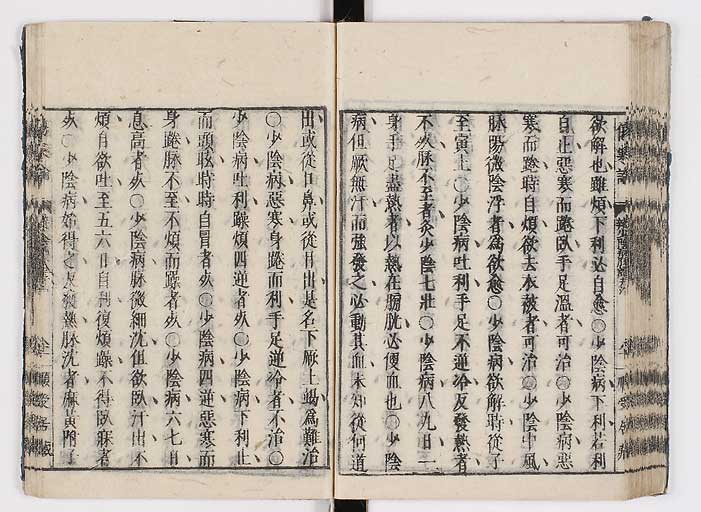 欲解也雖煩下利必自愈○少陰病下利若利
自止惡寒而踡臥手足溫者可治○少陰病惡
寒而踡時自煩欲去衣被者可治○少陰中風
脉陽微陰浮者為欲愈○少陰病欲解時從子
至寅上○少陰病吐利手足不逆冷反發熱者
不死脉不至者灸少陰七壯○少陰病八九日一
身手足盡熱者以熱在膀胱必便血也○少陰
病但厥無汗而強發之必動其血未知從何道
出或從口鼻或從目出是名下厥上竭為難治
○少陰病惡寒身踡而利手足逆冷者不治○
少陰病吐利躁煩四逆者死○少陰病下利止
而頭眩時時自冒者死○少陰病四逆惡寒而
身踡脉不至不煩而躁者死○少陰病六七日
息高者死○少陰病脉微細沈但欲臥汗出不
煩自欲吐至五六日自利復煩躁不得臥寐者
死○少陰病始得之反發熱脉沈者麻黃附子